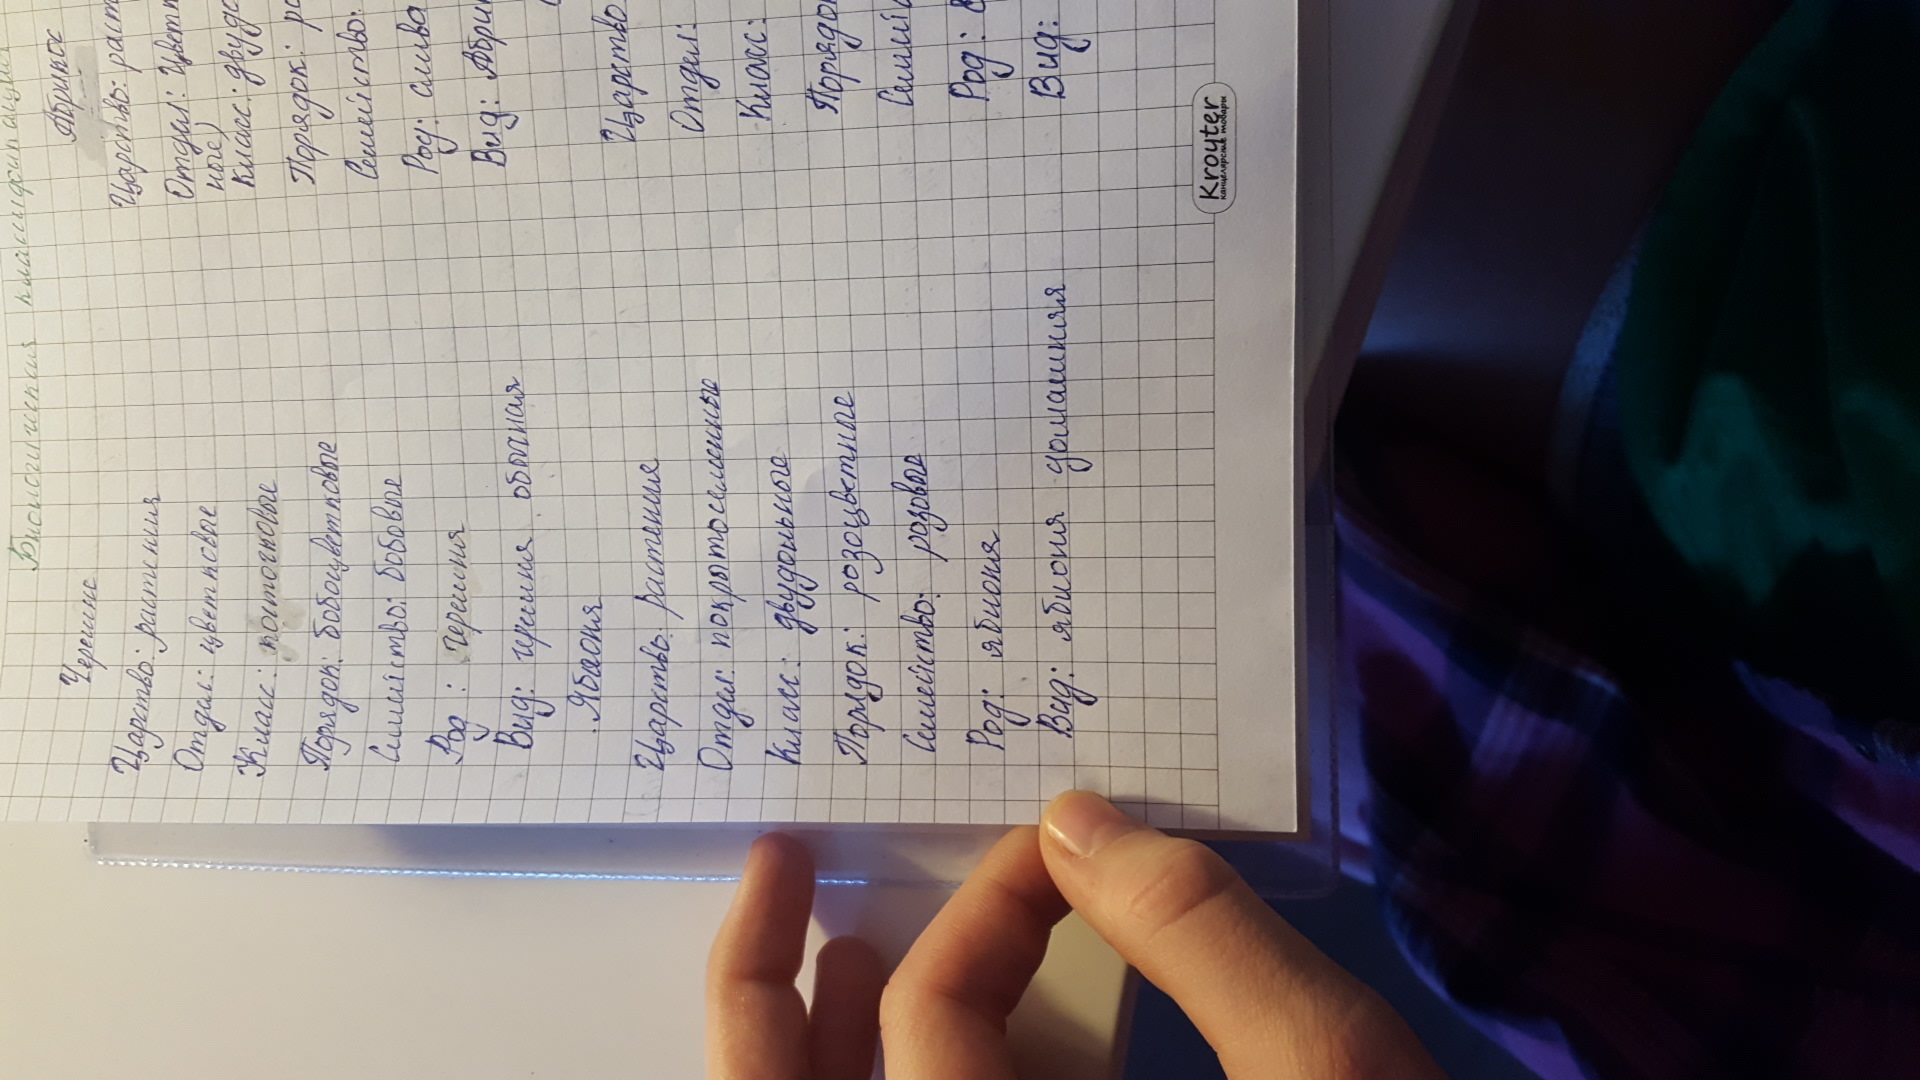 Биологическая классификация
Черешня
Царство: растения
Отдел: цветковые
Класс: косточковые
Порядок: бобоцветковые
Семейство: бобовые
Род : черешня
Вид: черешня обычная
Яблоня
Царство: растения
Отдел: покрытосеменные
Класс: двудольные
Порядок: розоцветные
Семейство: розовые
Род: яблоня
Вид: яблоня домашняя
Абрикос
Царство: раст
Отдел: Цветк
ные)
Класс: двудо
Порядок: ро
Семейство:
Род: слива
Вид: Абри
Царство
Отдел:
Класс:
Порядок
Семейс
Род:
Вид:
Kroyter
канцелярские товары